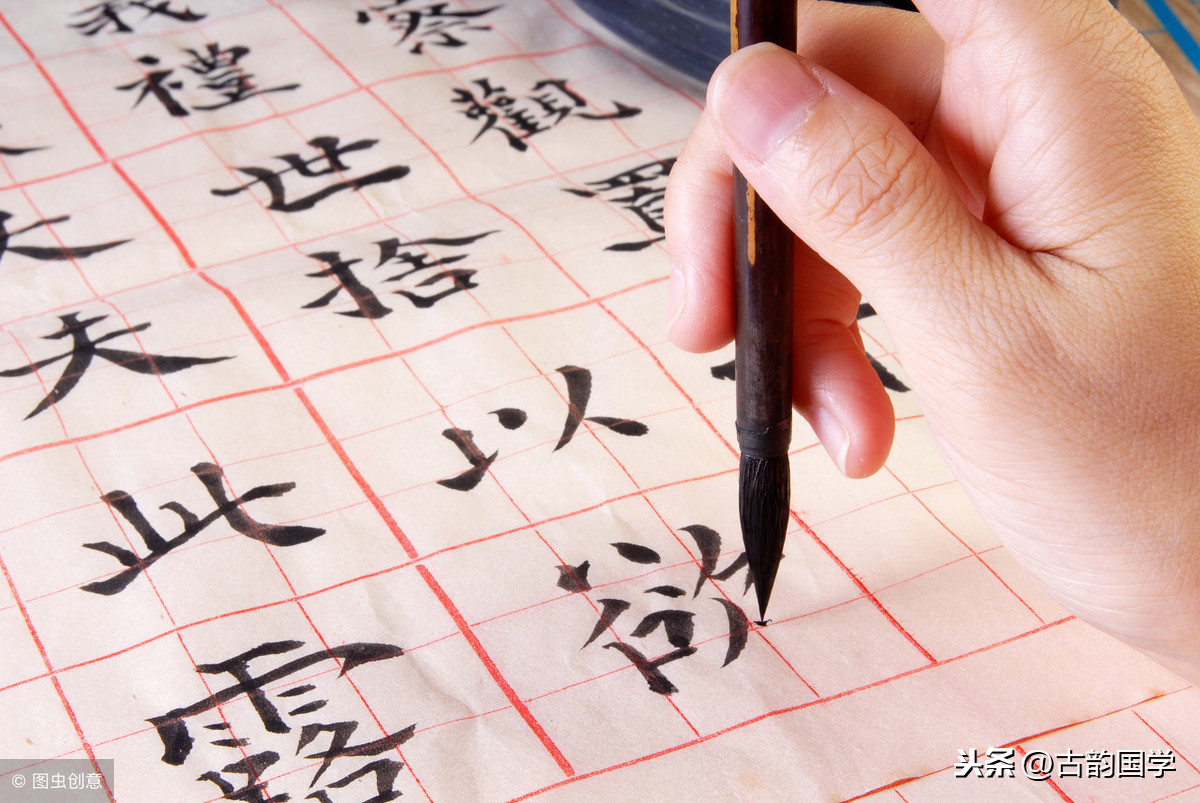 察觀
禮世捨以欲
夫此露
© 图虫创意
头条 @古韵国学